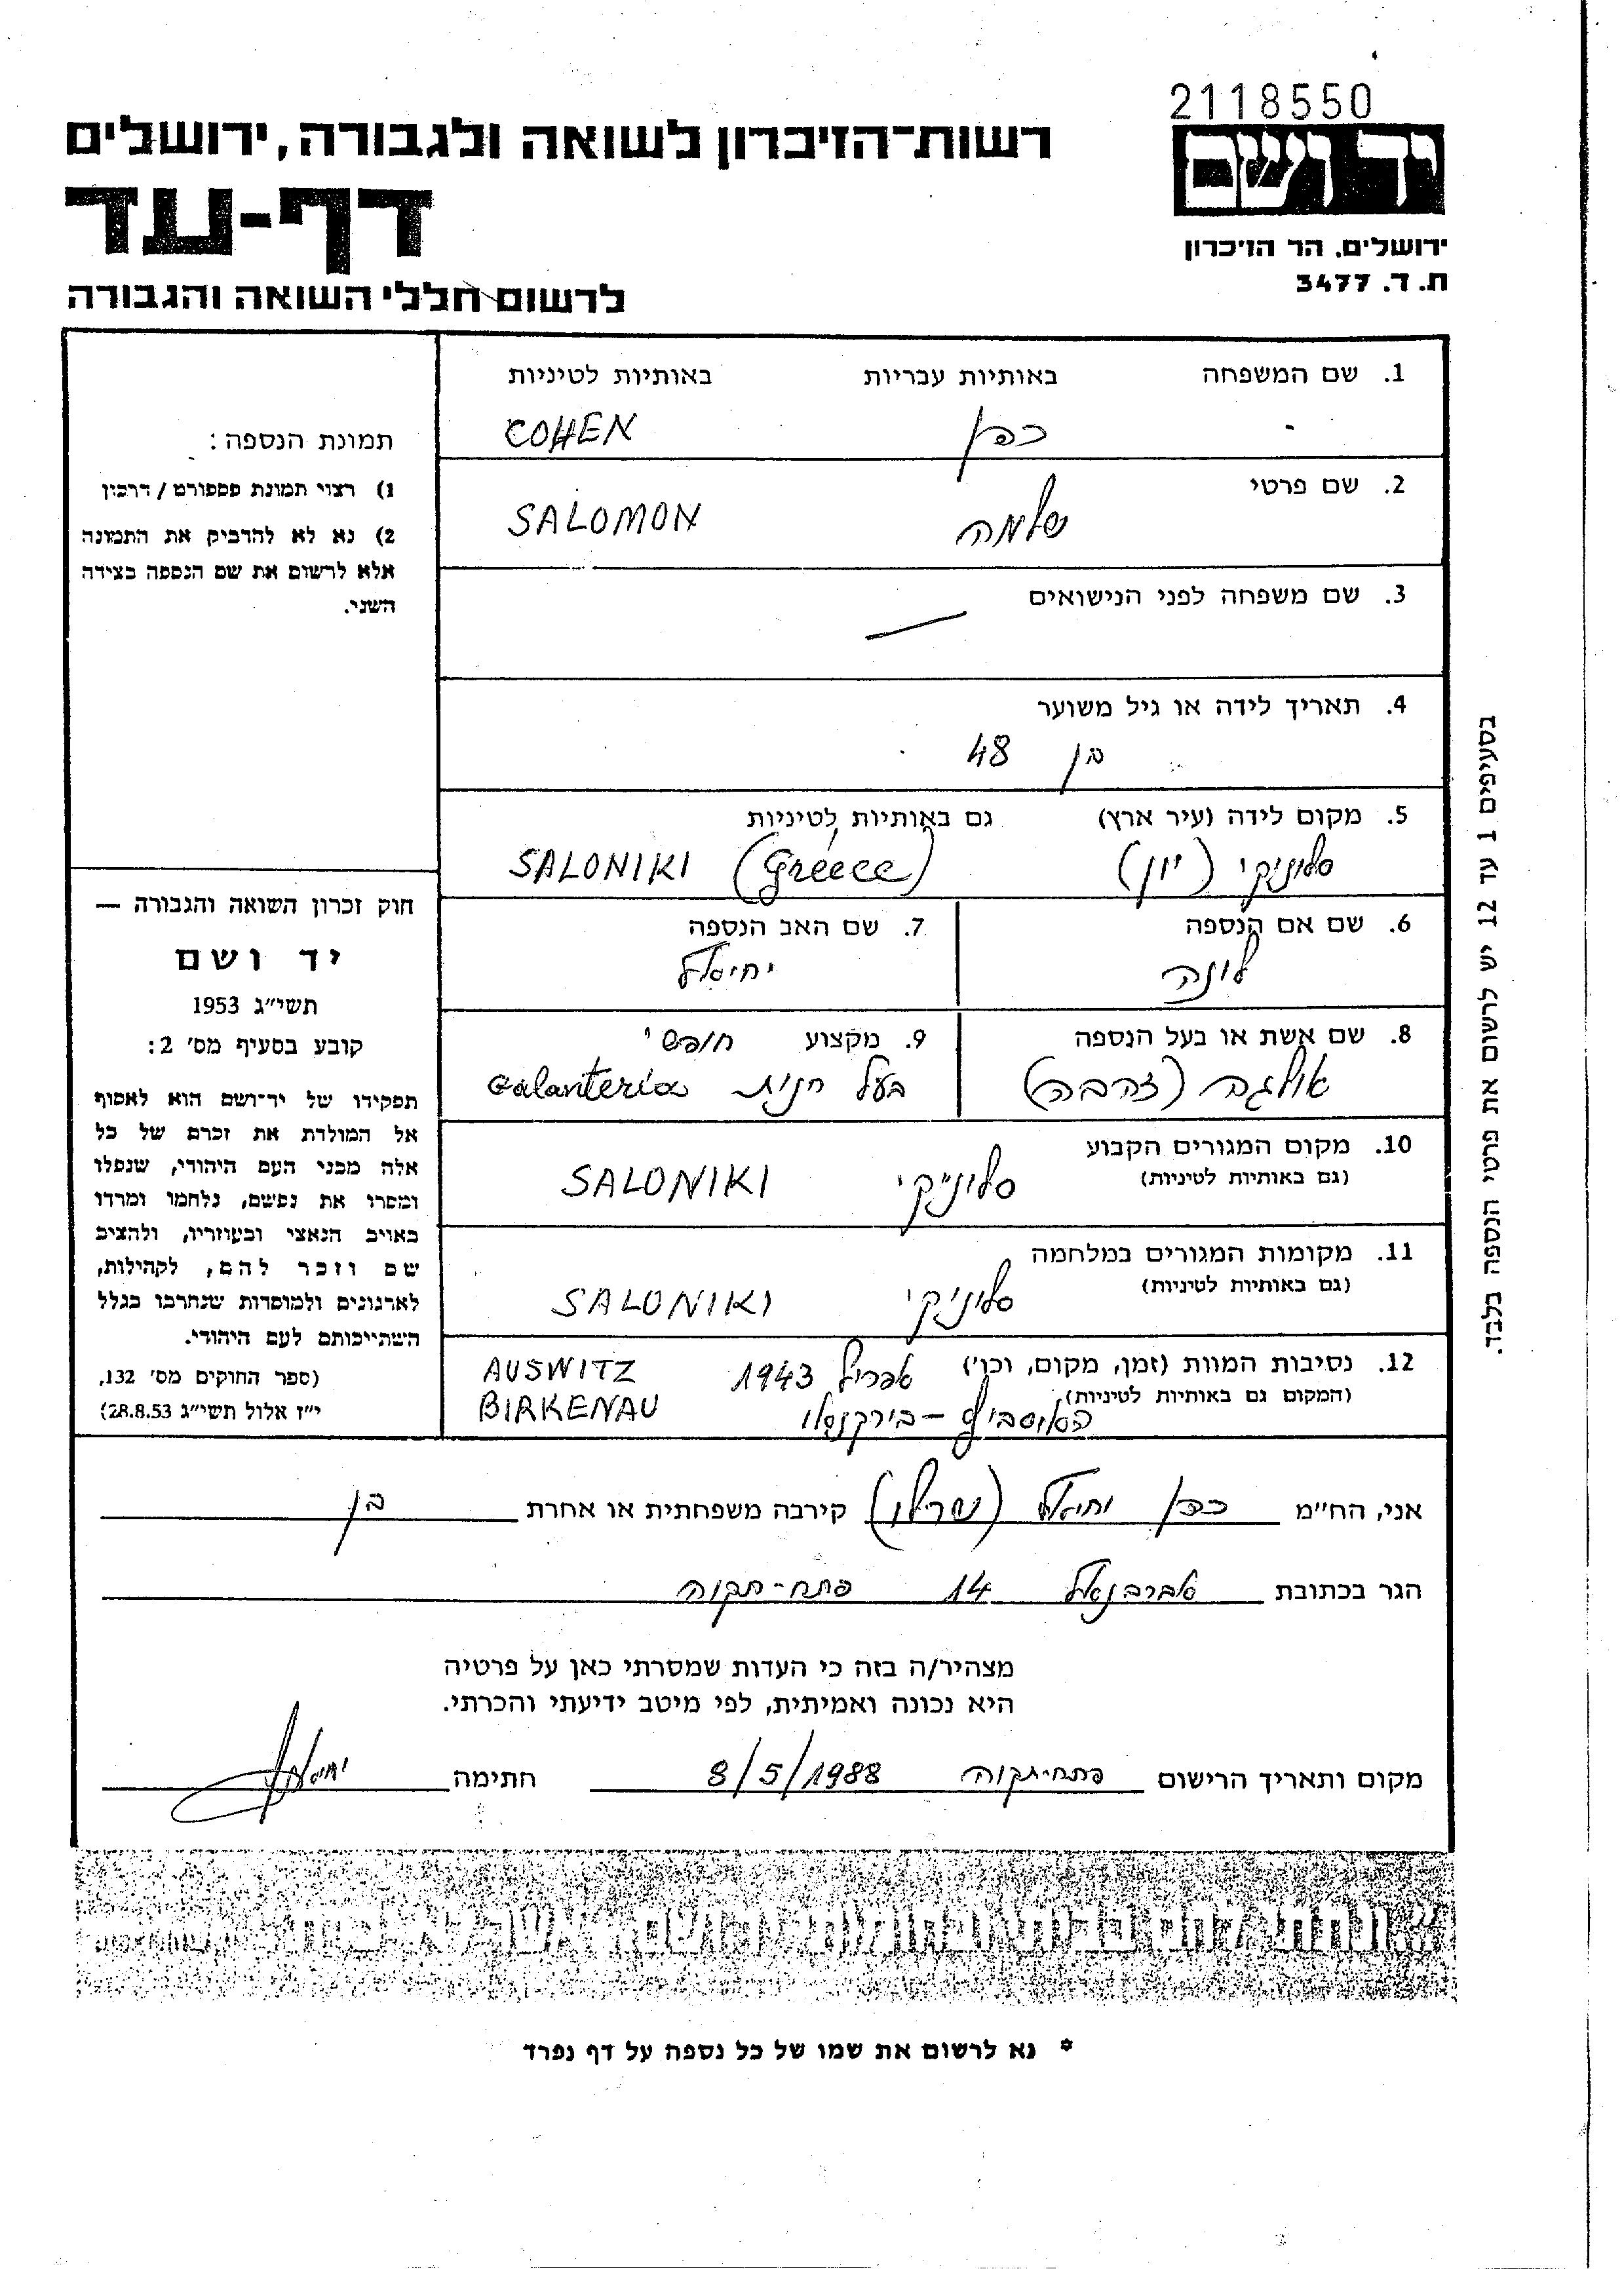 2118550
יד ושם
ירושלים. הר הזיכרון
ת. ד. 3477
רשות-הזיכרון לשואה ולגבורה, ירושלים
דף-עד
לרשום חללי השואה והגבורה
1. שם המשפחה באותיות עבריות באותיות לטיניות
כהן COHEN
2. שם פרטי
שלמה SALOMON
3. שם משפחה לפני הנישואים
—
4. תאריך לידה או גיל משוער
בן 48
5. מקום לידה (עיר ארץ) גם באותיות לטיניות
סלוניקי (יון) SALONIKI (Greece)
6. שם אם הנספה
לונה
7. שם האב הנספה
יחיאל
8. שם אשת או בעל הנספה
אולגה (זהבה)
9. מקצוע חופשי
בעל חנות Galanteria
10. מקום המגורים הקבוע
(גם באותיות לטיניות)
סלוניקי SALONIKI
11. מקומות המגורים במלחמה
(גם באותיות לטיניות)
סלוניקי SALONIKI
12. נסיבות המוות (זמן, מקום, וכו') אפריל 1943 AUSWITZ
(המקום גם באותיות לטיניות)
באוסביץ - בירקנאו BIRKENAU
תמונת הנספה:
1) רצוי תמונת פספורט / דרכון
2) נא לא להדביק את התמונה
אלא לרשום את שם הנספה בצידה
השני.
חוק זכרון השואה והגבורה —
יד ושם
תשי״ג 1953
קובע בסעיף מס' 2:
תפקידו של יד־ושם הוא לאסוף
אל המולדת את זכרם של כל
אלה מבני העם היהודי, שנפלו
ומסרו את נפשם, נלחמו ומרדו
באויב הנאצי ובעוזריו, ולהציב
שם וזכר להם, לקהילות,
לארגונים ולמוסדות שנחרבו בגלל
השתייכותם לעם היהודי.
(ספר החוקים מס' 132,
י״ז אלול תשי״ג 28.8.53)
בסעיפים 1 עד 12 יש לרשום את פרטי הנספה בלבד.
אני, הח״מ כהן יחיאל קירבה משפחתית או אחרת בן
הגר בכתובת אברבנאל 14 פתח-תקוה
מצהיר/ה בזה כי העדות שמסרתי כאן על פרטיה
היא נכונה ואמיתית, לפי מיטב ידיעתי והכרתי.
מקום ותאריך הרישום פתח-תקוה 8/5/1988 חתימה
* נא לרשום את שמו של כל נספה על דף נפרד